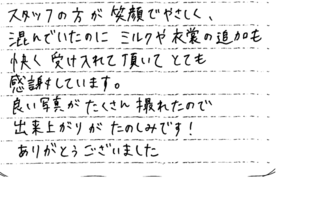 スタッフの方が笑顔でやさしく、
混んでいたのに ミルクや衣裳の追加も
快く受け入れて頂いて とても
感謝しています。
良い写真が たくさん 撮れたので
出来上がりが たのしみです！
ありがとうございました